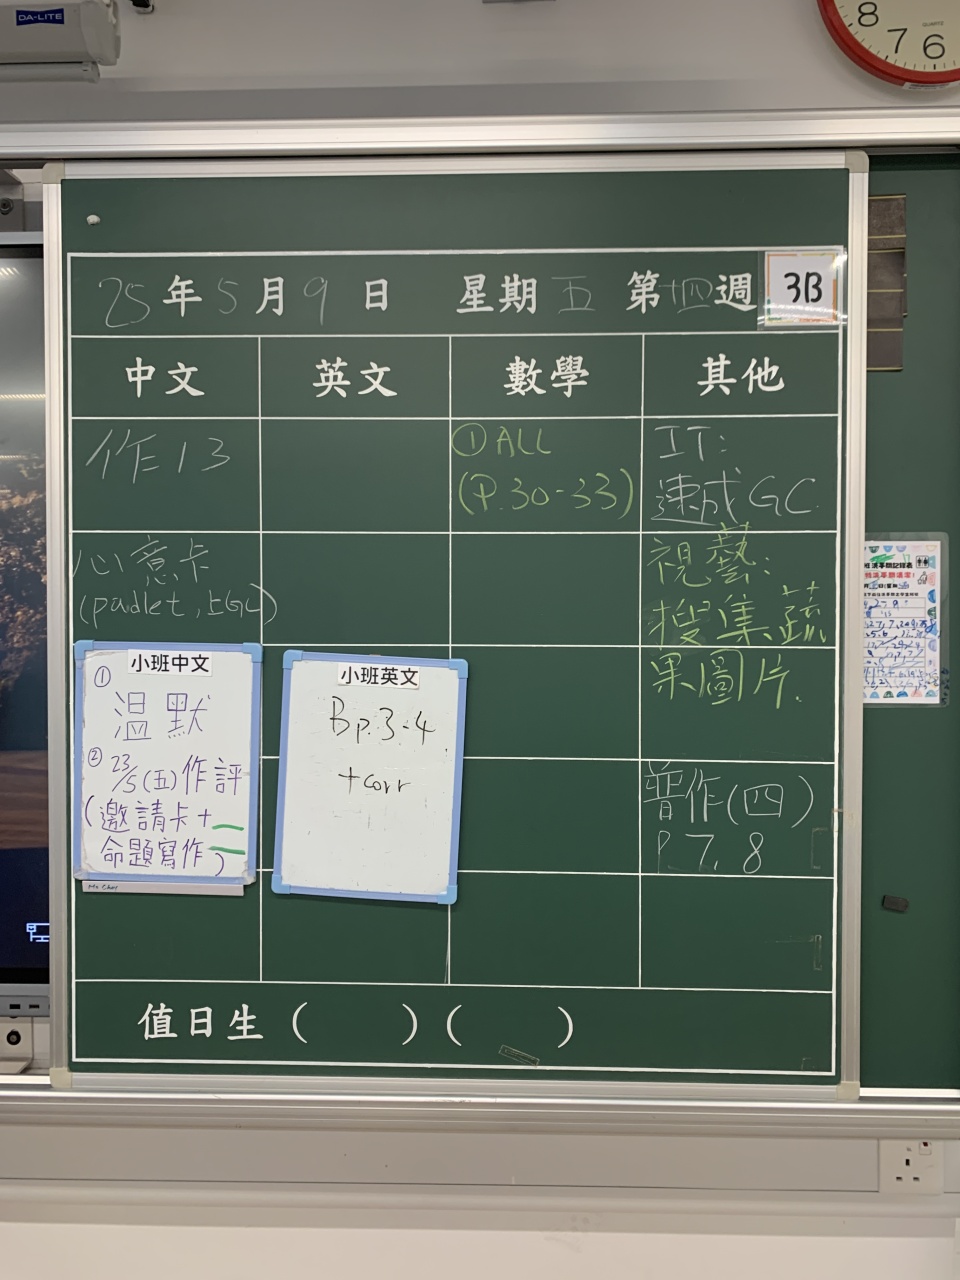 DA-LITE
8
7
6
QUARTZ
25年5月9日 星期五 第十四週 3B
中文 英文 數學 其他
作13
①ALL
(P.30-33)
IT:
速成GC
心意卡
(padlet,上GC)
視藝:
搜集蔬
果圖片.
小班中文
①
溫默
②
23/5(五)作評
(邀請卡+
命題寫作)
小班英文
Bp.3-4
+corr
普作(四)
P.7, 8
值日生( )( )